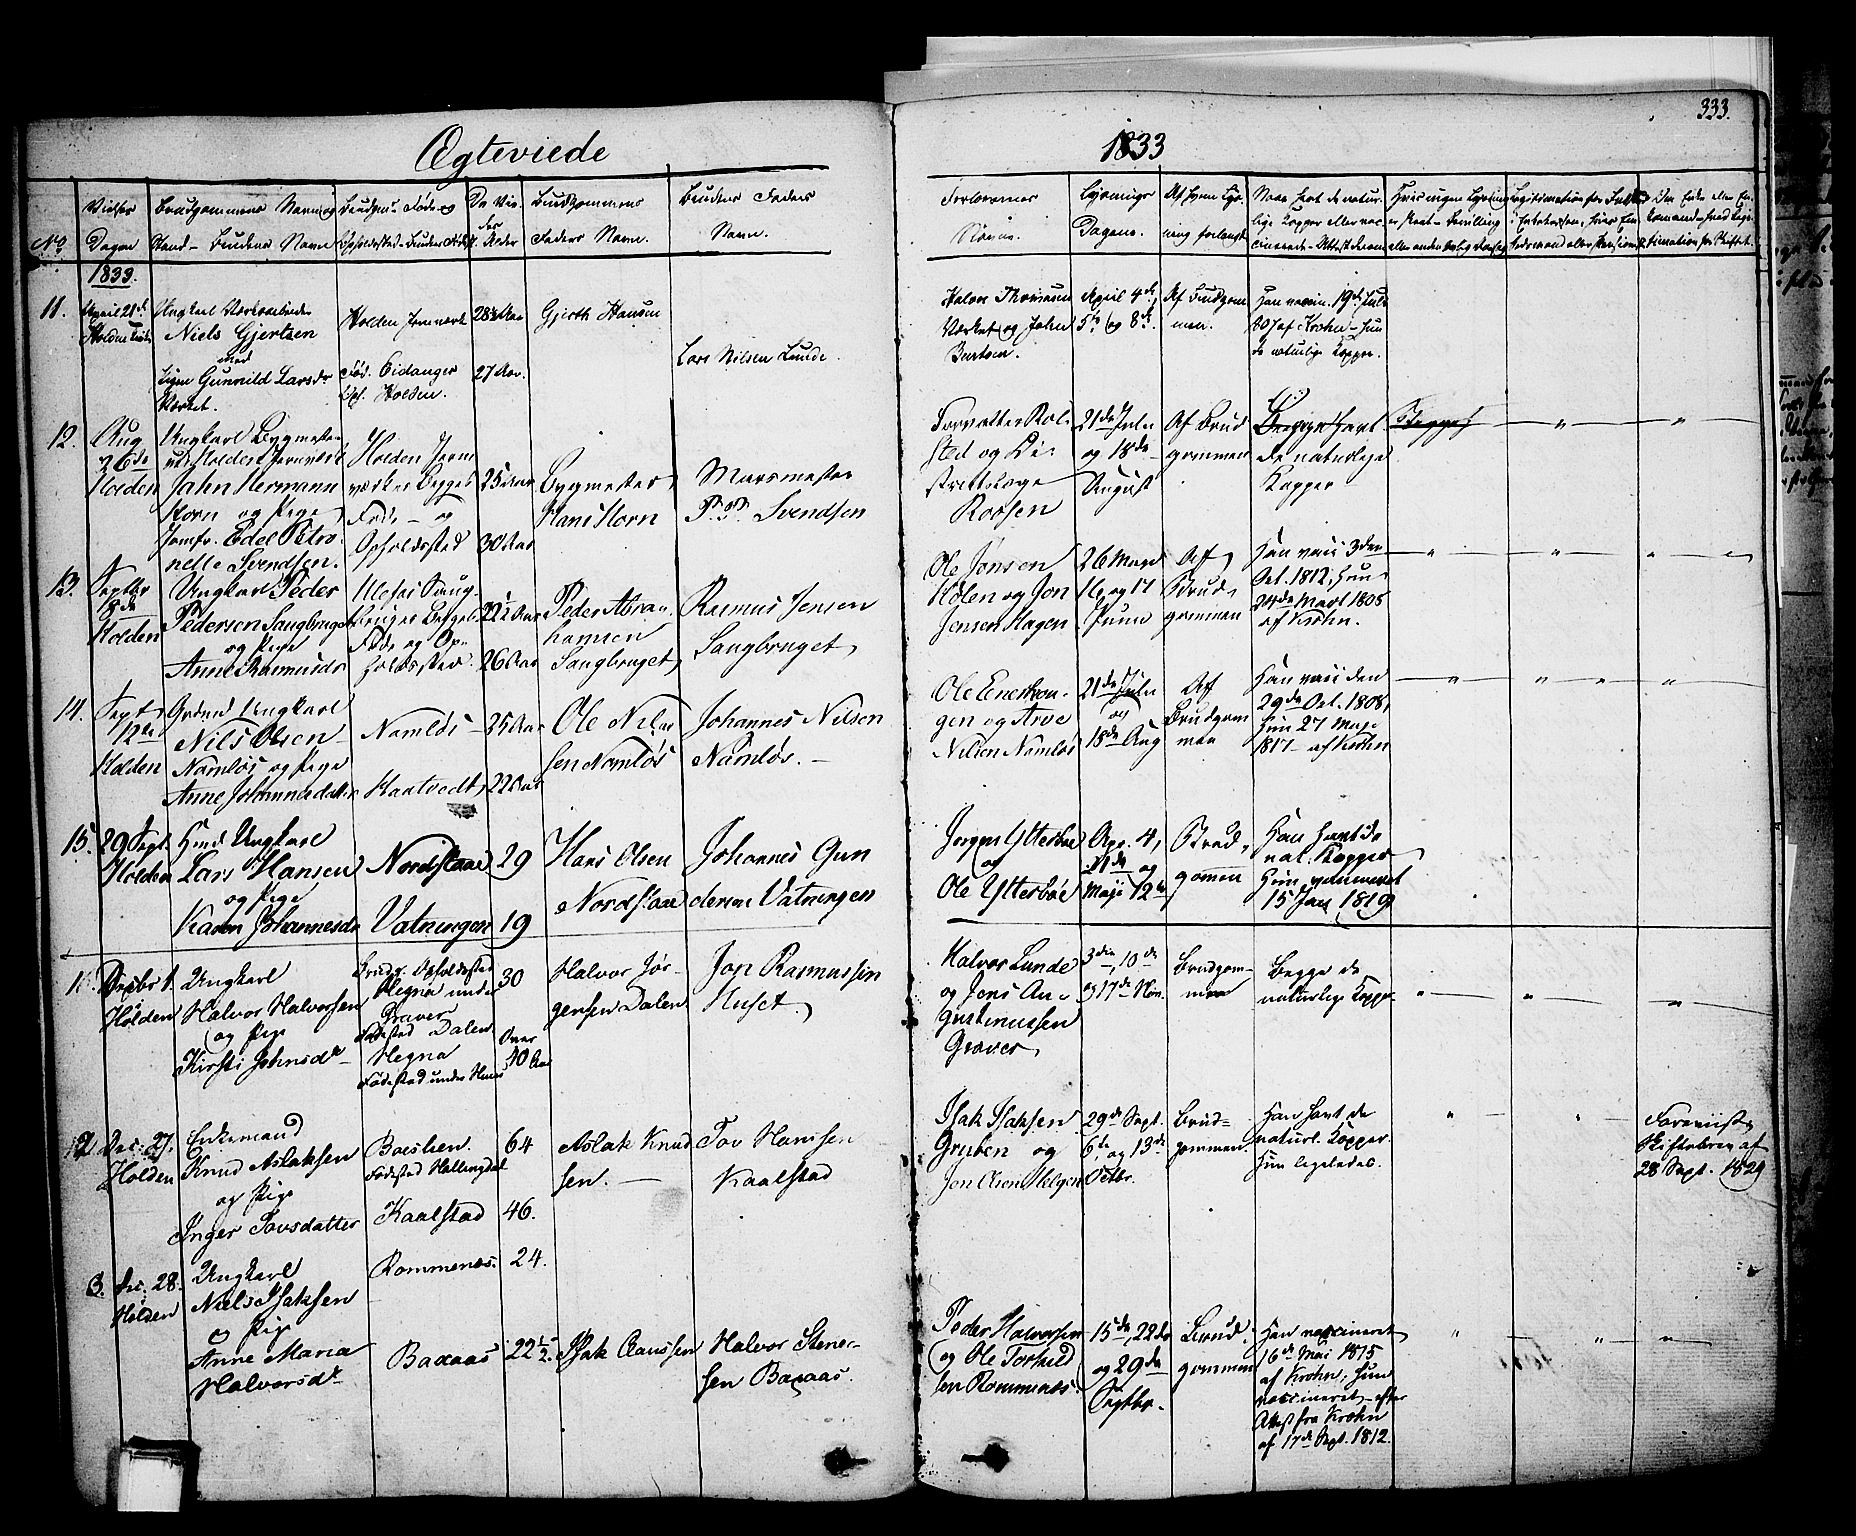 333.
Ægteviede
1833
No
Vielses
Dagen
Brudgommens Navn og
Stand - Brudens Navn
Brudgommens
Faders Navn.
Brudens Faders
Navn.
Forloverens
Navne.
Lysnings
Dagene.
1833.
11. April 21de
Ungkarl
Niels Gjertsen
med
Pigen Gunnild Larsdr
Værket.
Holden Jernværk
Fød. Eidanger
Opl. Holden.
28½ Aar
27 Aar.
Gjerth Hansen
Lars Nilsen Lunde.
Halvor Thomasen
Værket og John
April 4de
5te og 8de
Af Brudgom
men.
Han vaccin. 19de Juli
1807 af Krohn - hun
de naturlige Kopper.
12. Aug
26de
Holden
Ungkarl Bygmester
ved Holdens Jernværk
Jahn Hermann
Horn og Pige
Jomfr. Edel Petro
nelle Svendsen.
Holden Jern
værkes Bygsel
Føde - og
Opholdssted
25 Aar
30 Aar
Bygmester
Hans Horn
Marsmester
P. P. Svendsen
Forvalter Rol
sted og Di
striktslæge
Roosen
21de Juli
og 18de
August
Af Brud
gommen
Begge havt
de naturlige
Kopper
Begge
13. Septbr
8de
Holden
Ungkarl Peder
Pedersen Saugbruget
og Pige
Anne Rasmusdr
Ulefos Saug
Bruges Bygsel
Føde og Op
holdssted.
22½ Aar
26 Aar
Peder Abra
hamsen
Saugbruget
Rasmus Jensen
Saugbruget
Ole Jonsen
Holen og Jon
Jensen Hagen
26 Maj
16 og 17
Juni
Af
Brud
gommen
Han vacc. 3die
Oct. 1812, Hun
24de Mart 1808
af Krohn.
14. Sept
12te
Holden
Grdmd Ungkarl
Nils Olsen
Namløs og Pige
Anne Johannesdatter
Namløs
Kaatvedt
25 Aar
22 Aar
Ole Nil
sen Namløs
Johannes Nilsen
Namløs.
Ole Enerhau
gen og Arve
Nilsen Namløs
21de Juli
og
18de Aug
Af
Brudgom
men
Han vacc den
29de Oct. 1808,
Hun 27 Maji
1817 af Krohn
15. 29 Sept.
Holden
Hmd Ungkarl
Lars Hansen
og Pige
Karen Johannesdr
Nordstaae
Vatningen
29
19
Hans Olsen
Nordstaae
Johannes Gun
dersen Vatningen
Jørgen Ytterbøe
og
Ole Ytterbøe
Apr. 4,
21de og
Maji 12te
Brud
gomen
Han havt de
nat. Kopper
Hun vaccineret
15 Jan 1819
Decbr 1.
Holden
Ungkarl
Halvor Halvorsen
og Pige
Kirsti Johnsdr
Brudg. Opholdssted
Hegna under
Graver
Fødested Dalen
Hegna
Fødested under Huset
30
Over
40 Aar
Halvor Jør
gensen Dalen
Jon Rasmussen
Huset
Halvor Lunde
og Jens Au
gustinussen
Graver
3die, 10de
og 17de Nov.
Brudgom
men
Begge de
naturlige Kopper
17 Dec: 27.
Holden
Enkemand
Knud Aslaksen
og Pige
Inger Tovsdatter
Baeslien.
Fødested Hallingdal
Kaalstad
64
46.
Aslak Knud
sen.
Tov Hansen
Kaalstad
Isak Isaksen
Gruben og
Jon Olsen Helgen
29de Sept.
6te og 13de
Octbr.
Brud
gommen
Han havt de
naturl. Kopper.
Hun ligeledes.
Foreviiste
Skiftebrev af
28 Sept. 1829
Dec. 28.
Holden
Ungkarl
Niels Isaksen
og Pige
Anne Maria
Halvorsdr
Rommenæs.
Baxaas
24.
22½.
Isak Claussen
Halvor Stener
sen Baxaas.
Peder Halvorsen
og Ole Torkild
sen Rommenæs.
15de, 22de
og 29de
Septbr.
Brud
gommen
Han vaccineret
16de Mai 1815
af Krohn, hun
vaccineret efter
Attest fra Krohn
af 17de Sept. 1812.